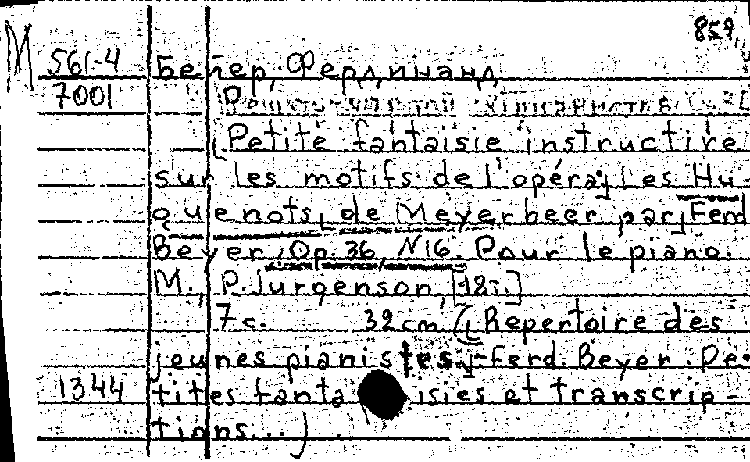 859
М 561-4 Бейер, Фердинанд
7001
[Petite fantaisie instructive
sur les motifs de l'opéra: Les Hu-
guenots, de Meyerbeer par Ferd
Beyer, Op. 36, N16. Pour le piano.
M., P. Jurgenson, [18т.]
7 с. 32 cm (Repertoire des
jeunes pianistes. Ferd. Beyer. Pe-
1344 tites fantaisies et transcrip-
tions...)